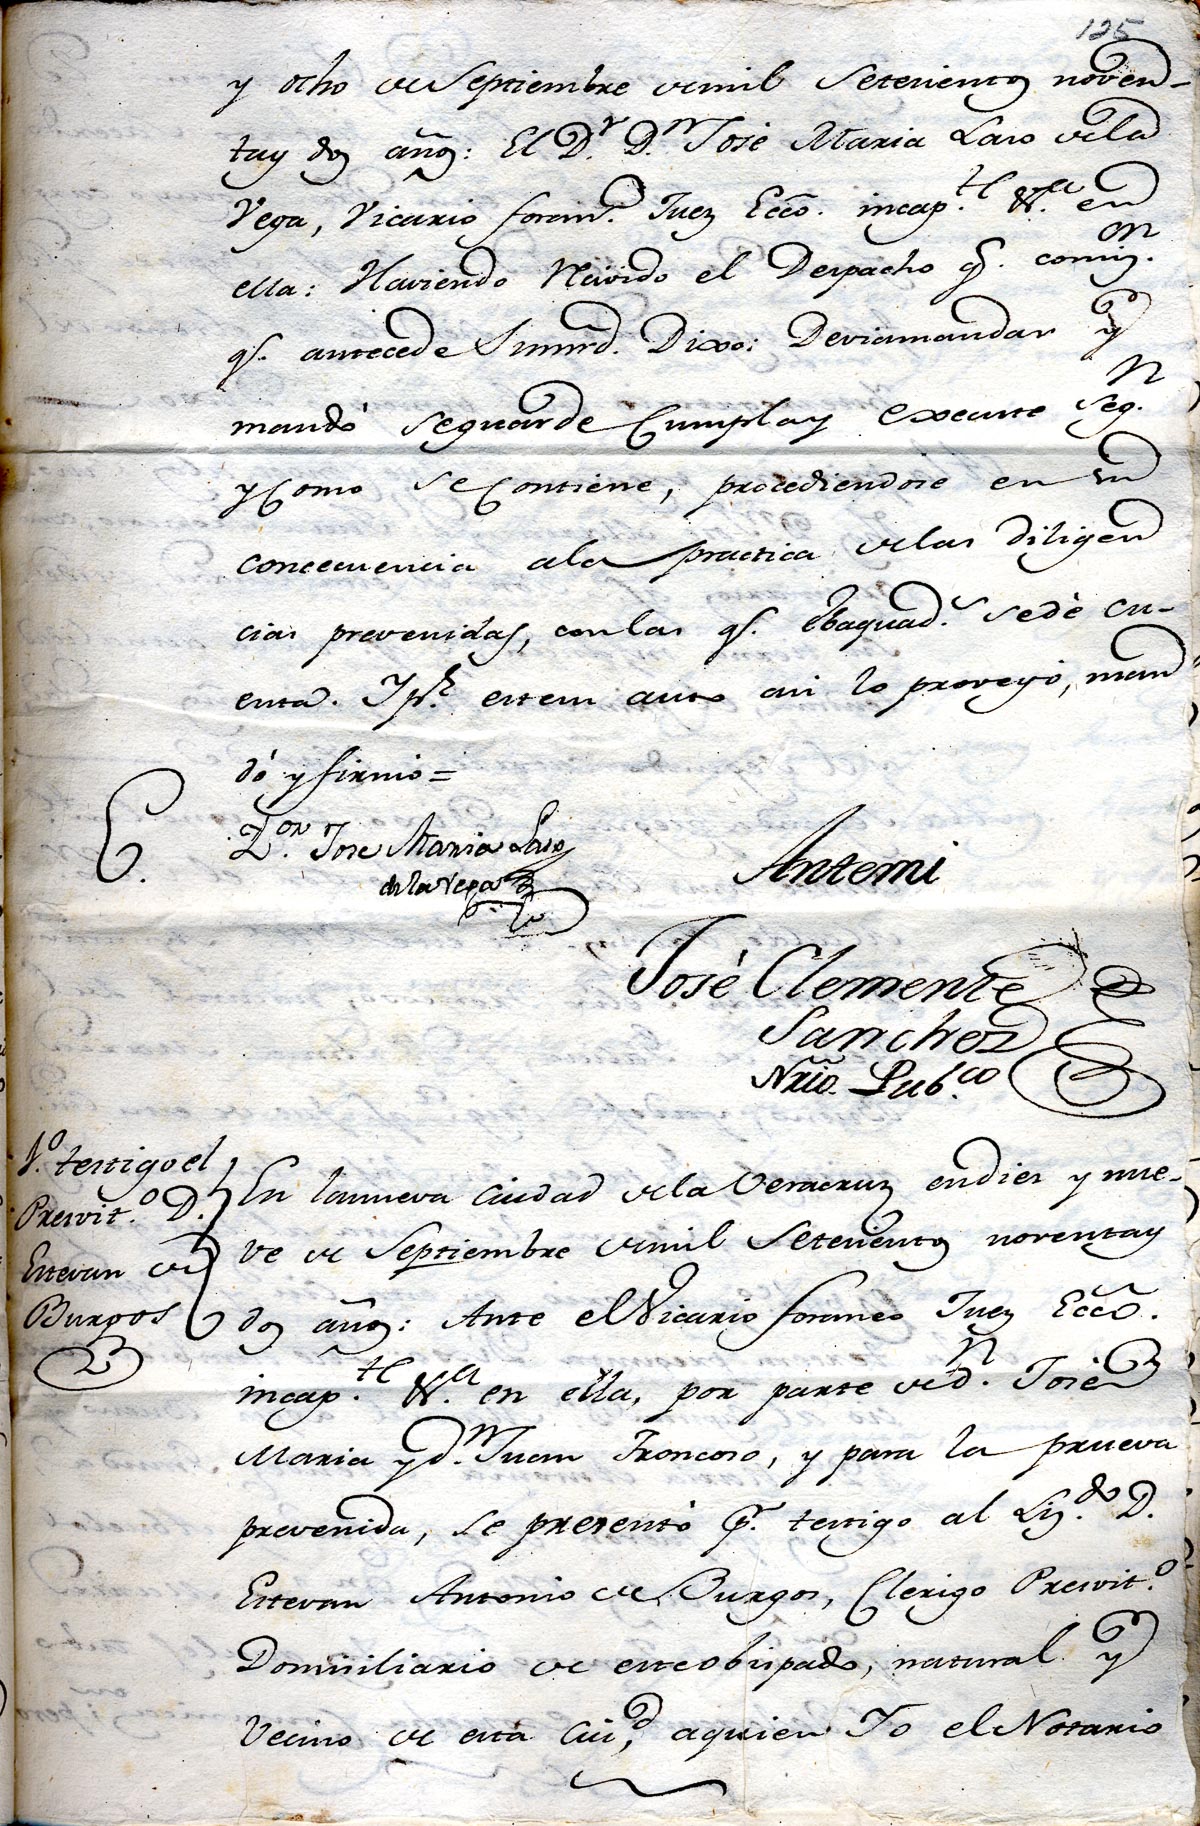 125
y ocho de Septiembre de mil Setecientos noven-
tay dos años: El D.r D.n José Maria Laso de la
Vega, Vicario foran.o Juez Ecco. incap.te &.a en
ella: Haviendo Recivido el Despacho q.e comis.on
q.e antecede Su mrd. Dixo: Devia mandar y
mandó se guarde Cumpla y execute seg.n
y Como se Contiene, procediendose en su
concecuencia a la practica de las diligen
cias prevenidas, con las q.e ebaquad.s se dè cu-
enta. Y p.r este su auto asi lo proveyó, man
dó y firmó =
D.on Jose Maria Laso
de la Vega
Antemi
José Clemente
Sanchez
Nrio. Pub.co
1.o testigo el
Presvit.o D.
Estevan de
Burgos
En la nueva Ciudad de la Veracruz en dies y nue-
ve de Septiembre de mil Setecientos noventay
dos años: Ante el Vicario foraneo Juez Ecco.
incap.te &.a en ella, por parte de d.n José
Maria y d.n Juan Troncoso, y para la prueva
prevenida, se presentò p.r testigo al Liz.do D.
Estevan Antonio de Burgos, Clerigo Presvit.o
Domiciliario de este obispado, natural y
Vecino de esta Ciu.d, a quien Yo el Notario